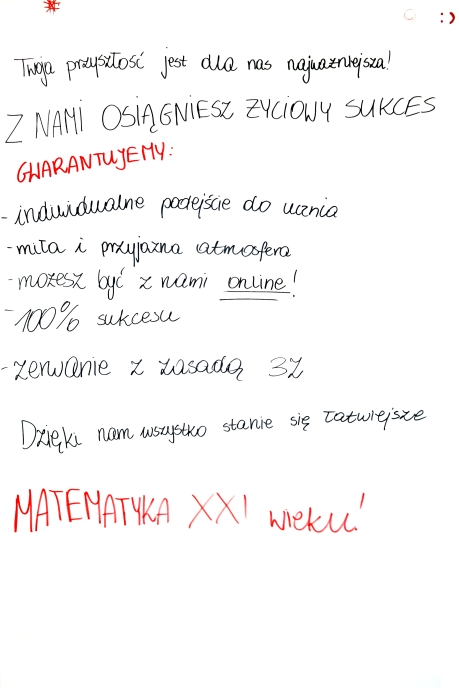 :)
Twoja przyszłość jest dla nas najważniejsza!
Z NAMI OSIĄGNIESZ ŻYCIOWY SUKCES
GWARANTUJEMY:
- indywidualne podejście do ucznia
- miła i przyjazna atmosfera
- możesz być z nami online!
- 100% sukcesu
- zerwanie z zasadą 3Z
Dzięki nam wszystko stanie się łatwiejsze
MATEMATYKA XXI wieku!